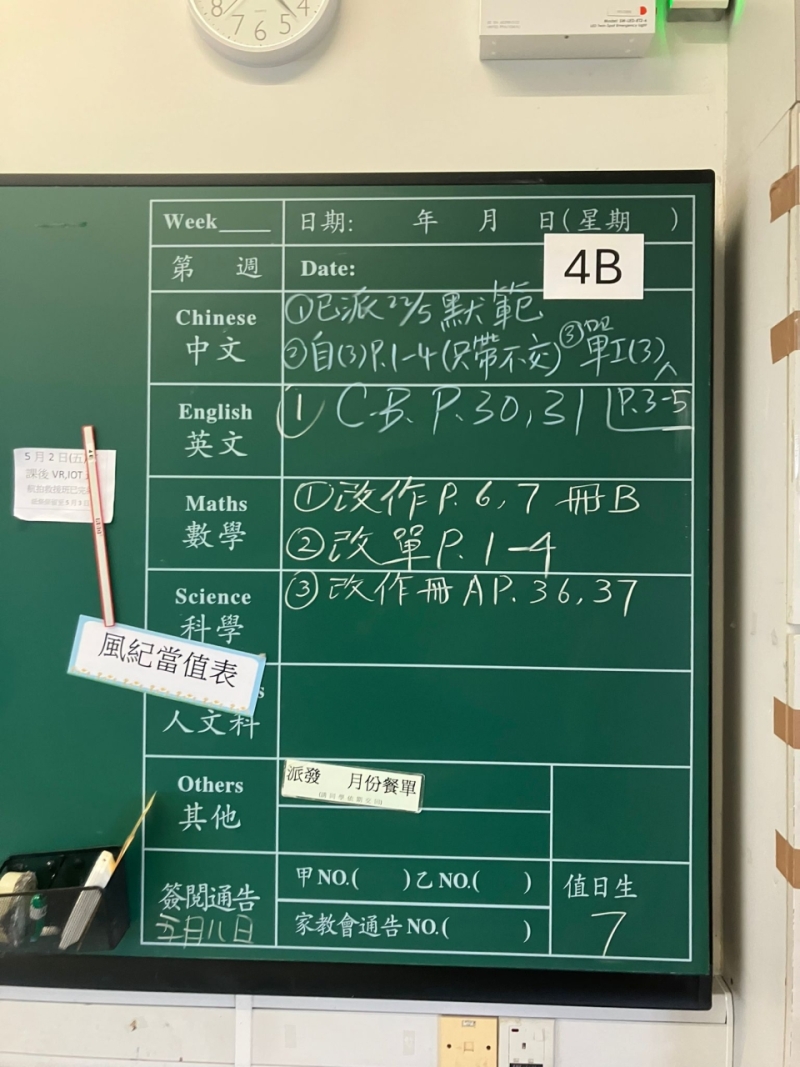 4
5
6
7
8
Week____ 日期: 年 月 日(星期 )
第 週 Date:
4B
Chinese
中文
①已派22/5默範
②自(3)P.1-4(只帶不交)③單I(3)
P.3-5
English
英文
① C.B. P.30,31
5月2日(五)
課後 VR,IOT
Maths
數學
①改作P.6,7 冊B
②改單P.1-4
Science
科學
③改作冊AP.36,37
風紀當值表
s
人文科
Others
其他
派發 月份餐單
簽閱通告
五月八日
甲NO.( )乙NO.( )
家教會通告NO.( )
值日生
7